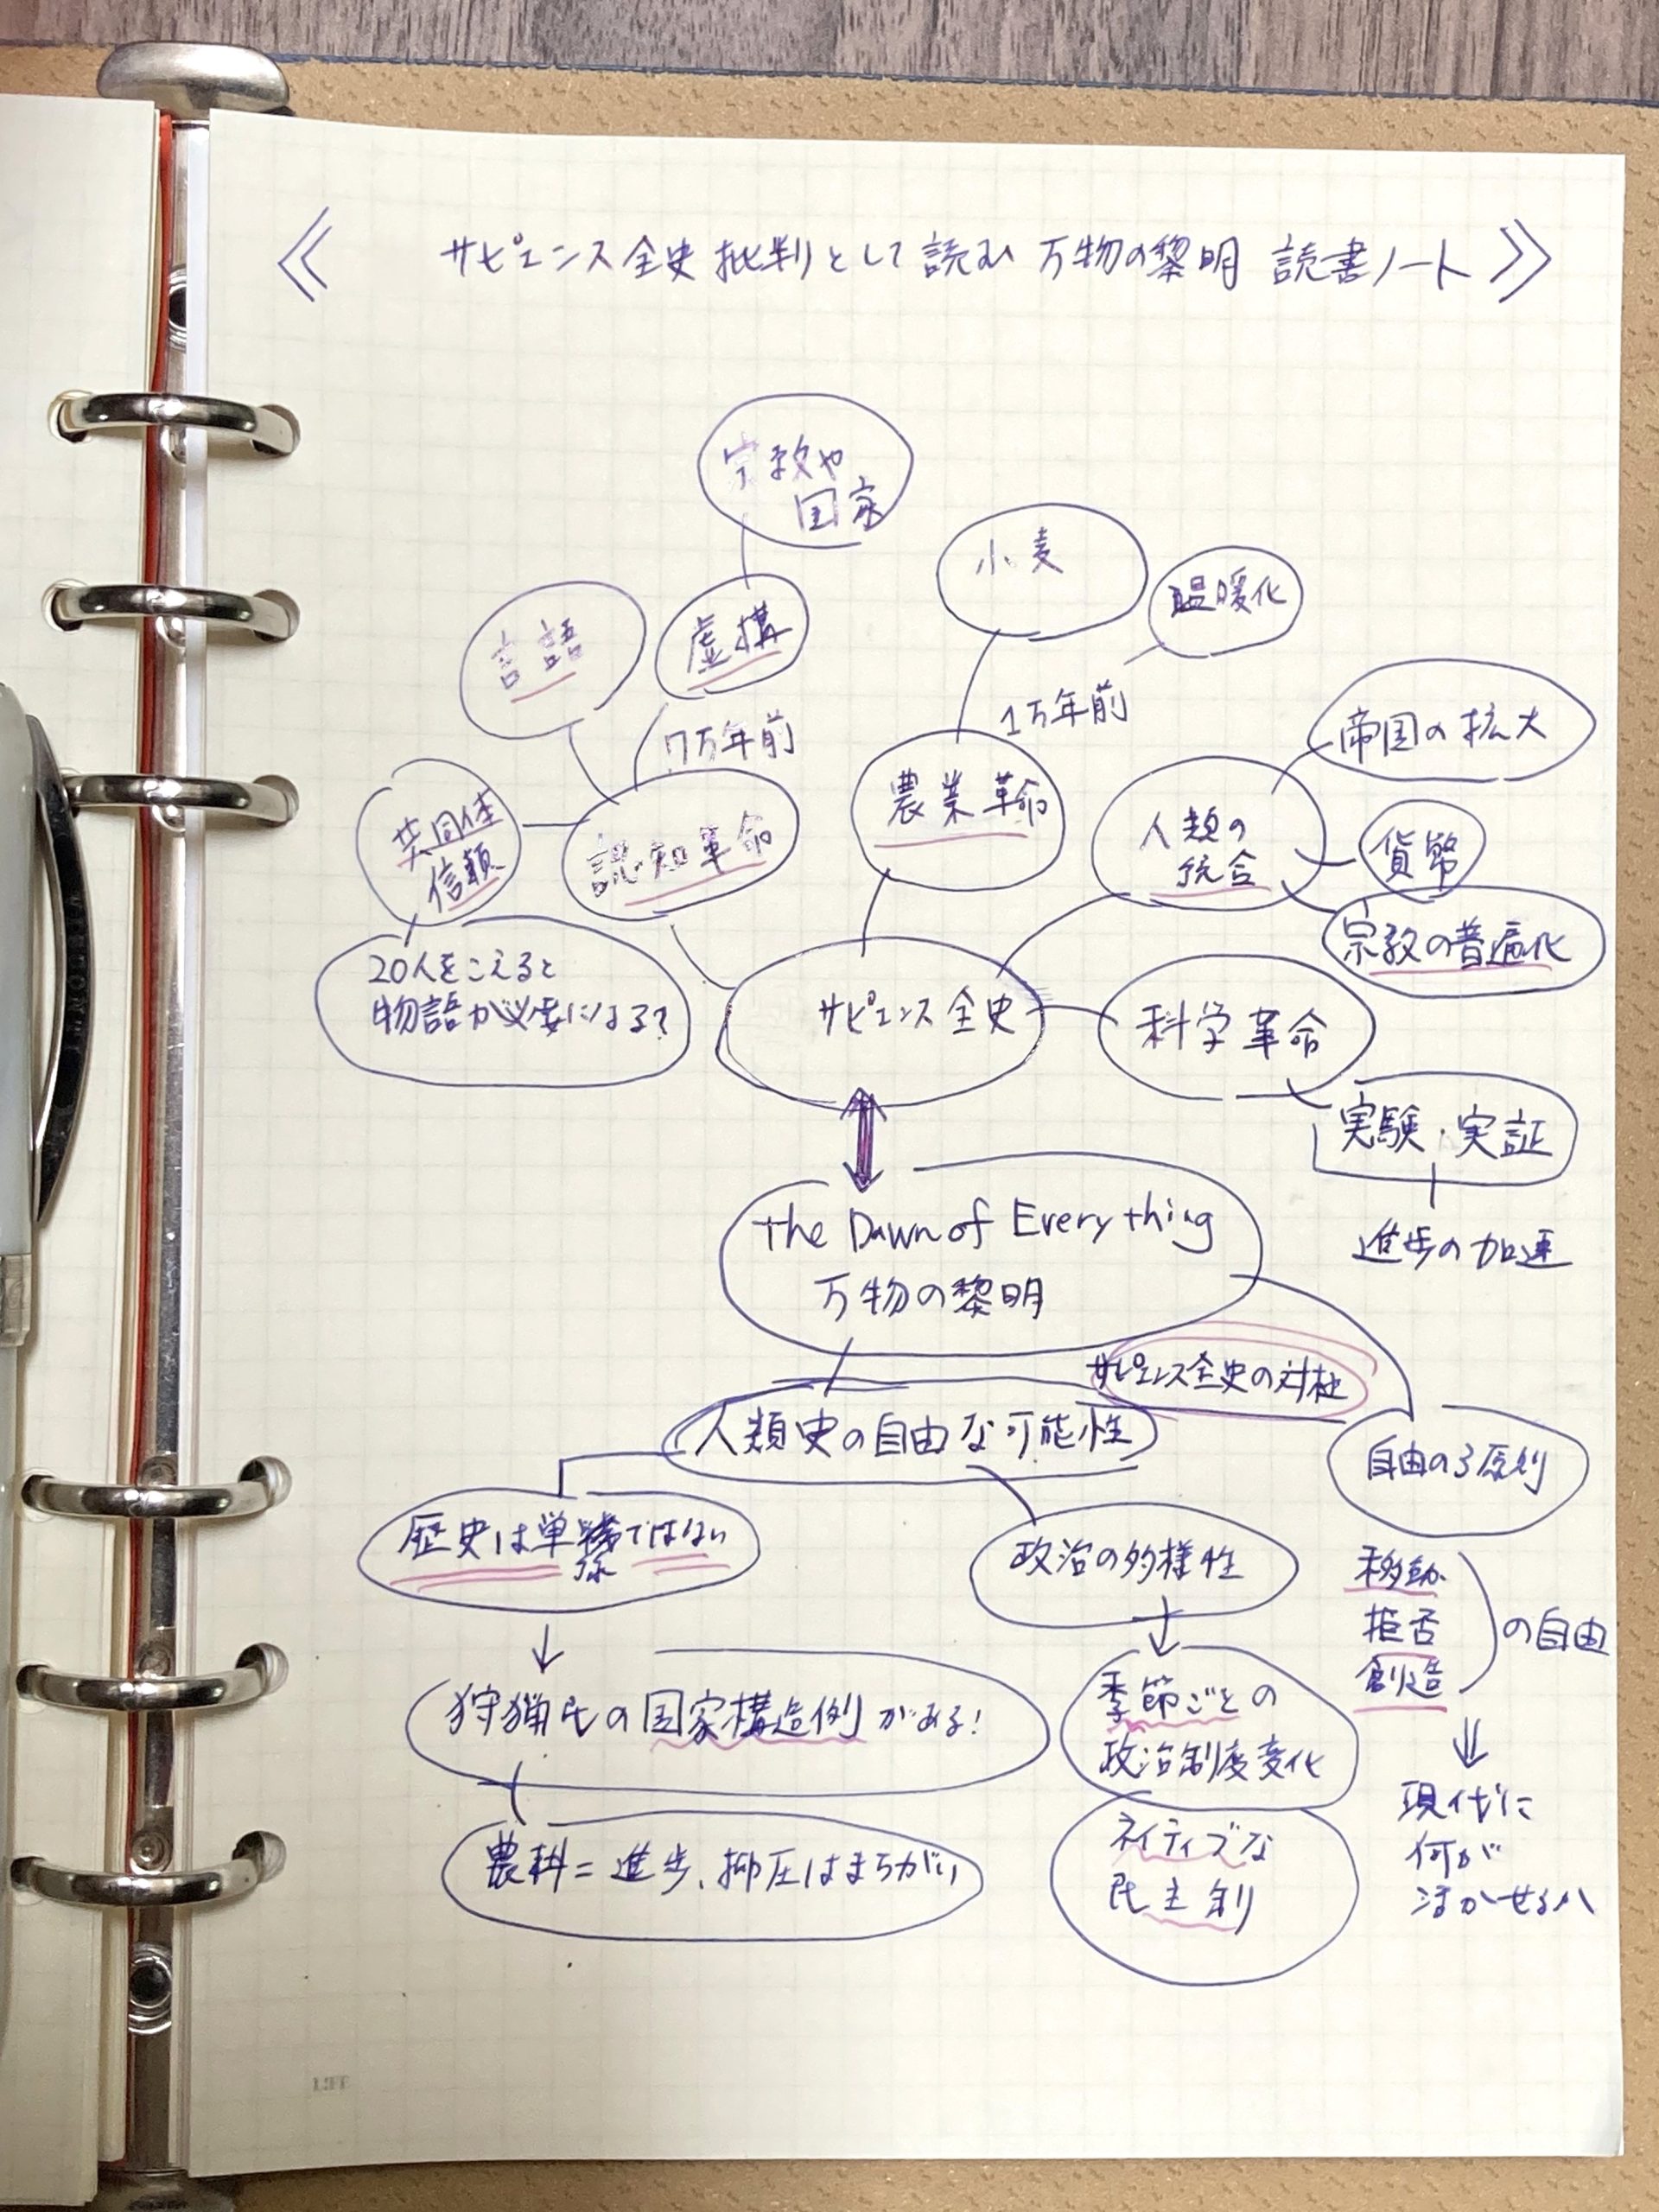 《 サピエンス全史批判として読む 万物の黎明 読書ノート 》
宗教や
国家
小麦
温暖化
言語
虚構
7万年前
1万年前
帝国の拡大
共同体
信頼
認知革命
農業革命
人類の
統合
貨幣
宗教の普遍化
20人をこえると
物語が必要になる?
サピエンス全史
科学革命
実験・実証
進歩の加速
The Dawn of Everything
万物の黎明
サピエンス全史の対極
人類史の自由な可能性
自由の3原則
歴史は単線ではない
政治の多様性
移動
拒否
創造
の自由
狩猟民の国家構造例がある!
季節ごとの
政治制度変化
現代に
何が
活かせるか
農耕=進歩、抑圧はまちがい
ネイティブな
民主制
LIFE